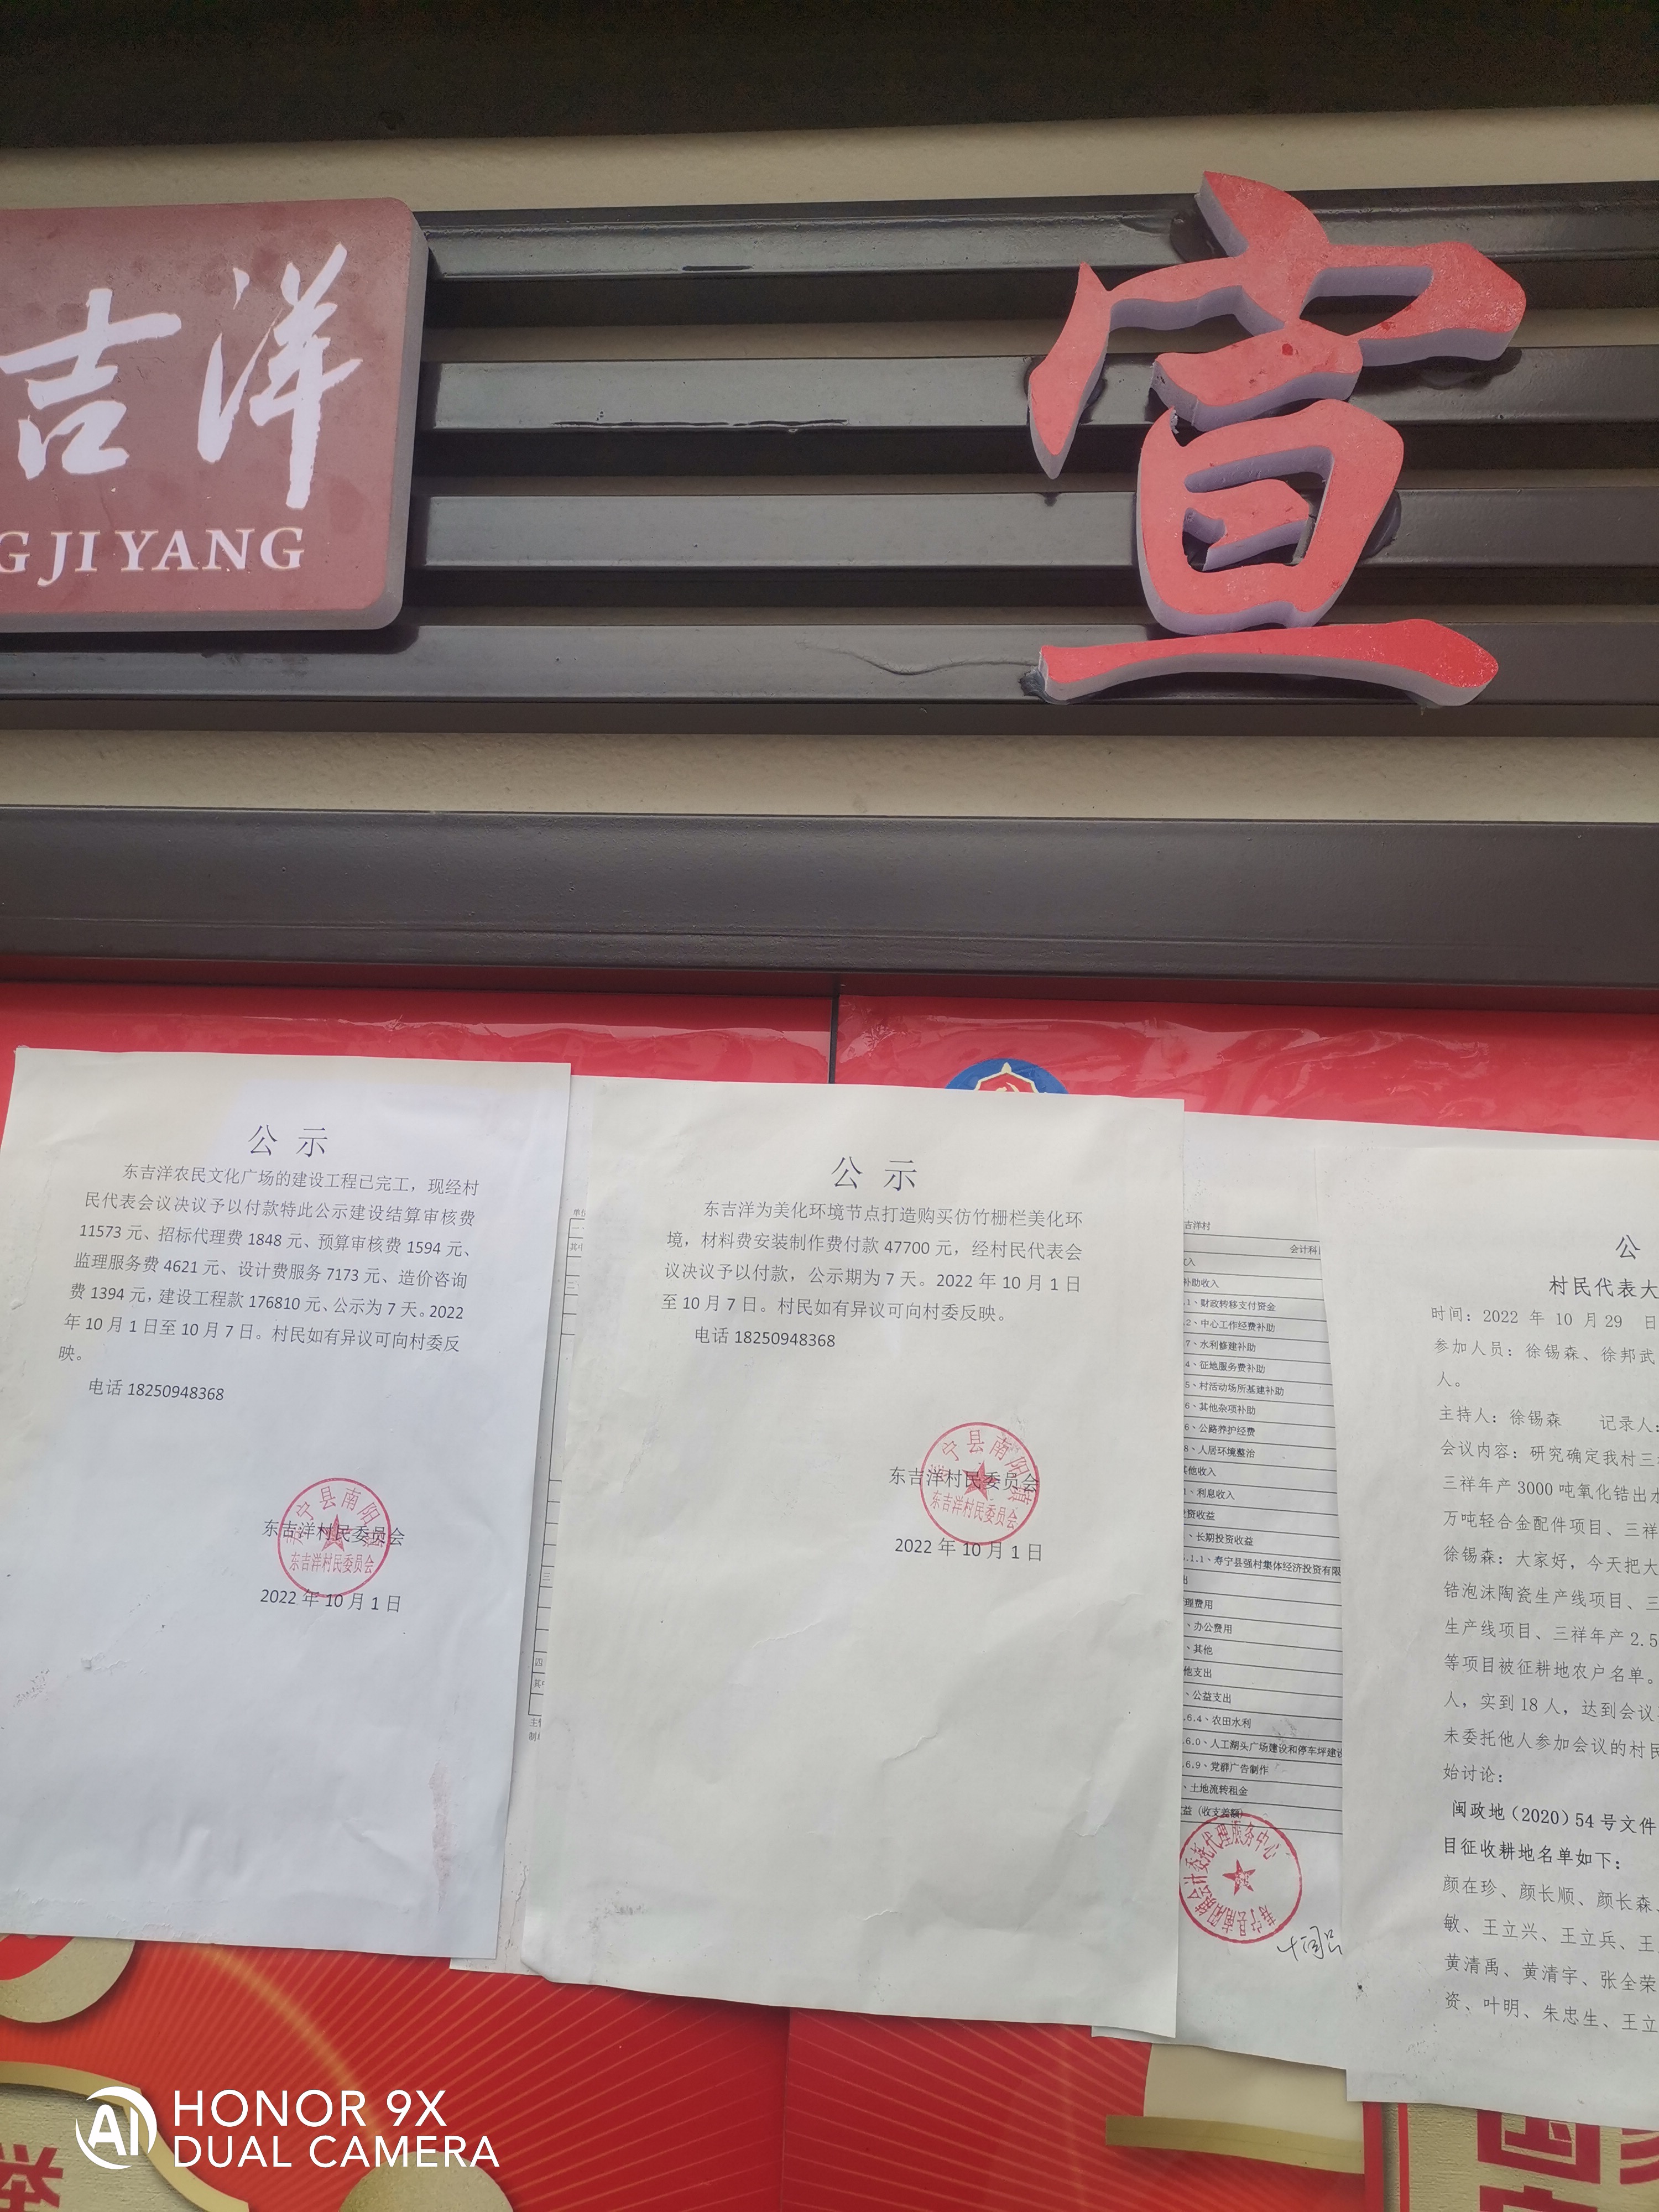 吉洋
GJIYANG
宣
公示
东吉洋农民文化广场的建设工程已完工，现经村
民代表会议决议予以付款特此公示建设结算审核费
11573 元、招标代理费 1848 元、预算审核费 1594 元、
监理服务费 4621 元、设计费服务 7173 元、造价咨询
费 1394 元，建设工程款 176810 元、公示为 7 天。2022
年 10 月 1 日至 10 月 7 日。村民如有异议可向村委反
映。
电话 18250948368
寿宁县南阳镇
东吉洋村民委员会
东吉洋村民委员会
2022 年 10 月 1 日
公示
东吉洋为美化环境节点打造购买仿竹栅栏美化环
境，材料费安装制作费付款 47700 元，经村民代表会
议决议予以付款，公示期为 7 天。2022 年 10 月 1 日
至 10 月 7 日。村民如有异议可向村委反映。
电话 18250948368
寿宁县南阳镇
东吉洋村民委员会
东吉洋村民委员会
2022 年 10 月 1 日
吉洋村
会计科
收入
补助收入
.1、财政转移支付资金
.2、中心工作经费补助
7、水利修建补助
4、征地服务费补助
5、村活动场所基建补助
6、其他杂项补助
6、公路养护经费
8、人居环境整治
其他收入
、利息收入
投资收益
、长期投资收益
.1.1、寿宁县强村集体经济投资有限
出
理费用
、办公费用
、其他
他支出
、公益支出
.6.4、农田水利
.6.0、人工湖头广场建设和停车坪建设
.6.9、党群广告制作
、土地流转租金
益（收支差额）
寿宁县南阳镇会计委托代理服务中心
公
村民代表大
时间：2022 年 10 月 29 日
参加人员：徐锡森、徐邦武
人。
主持人：徐锡森 记录人：
会议内容：研究确定我村三
三祥年产 3000 吨氧化锆出水
万吨轻合金配件项目、三祥
徐锡森：大家好，今天把大
锆泡沫陶瓷生产线项目、三
生产线项目、三祥年产 2.5
等项目被征耕地农户名单。
人，实到 18 人，达到会议
未委托他人参加会议的村民
始讨论：
闽政地（2020）54 号文件
目征收耕地名单如下：
颜在珍、颜长顺、颜长森、
敏、王立兴、王立兵、王
黄清禹、黄清宇、张全荣
资、叶明、朱忠生、王立
AI HONOR 9X
DUAL CAMERA